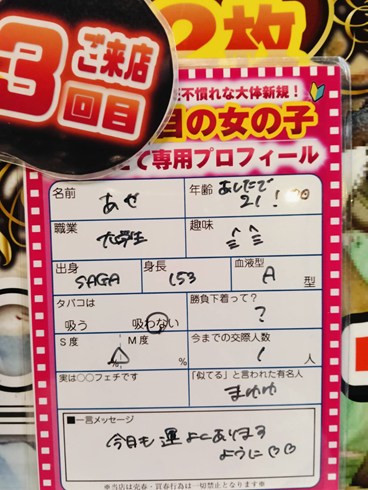 ご来店
3回目
2枚
不慣れな大体新規!
目の女の子
て専用プロフィール
名前 あせ
年齢 あしたで21!♡♡
職業 大学生
趣味
出身 SAGA
身長 153
血液型 A型
タバコは
吸う 吸わない
勝負下着って?
?
S度 M度
% %
今までの交際人数
1人
実は○○フェチです
「似てる」と言われた有名人
まゆゆ
■一言メッセージ
今日も運よくあります
ように♡♡
※当店は売春・買春行為は一切禁止となります※